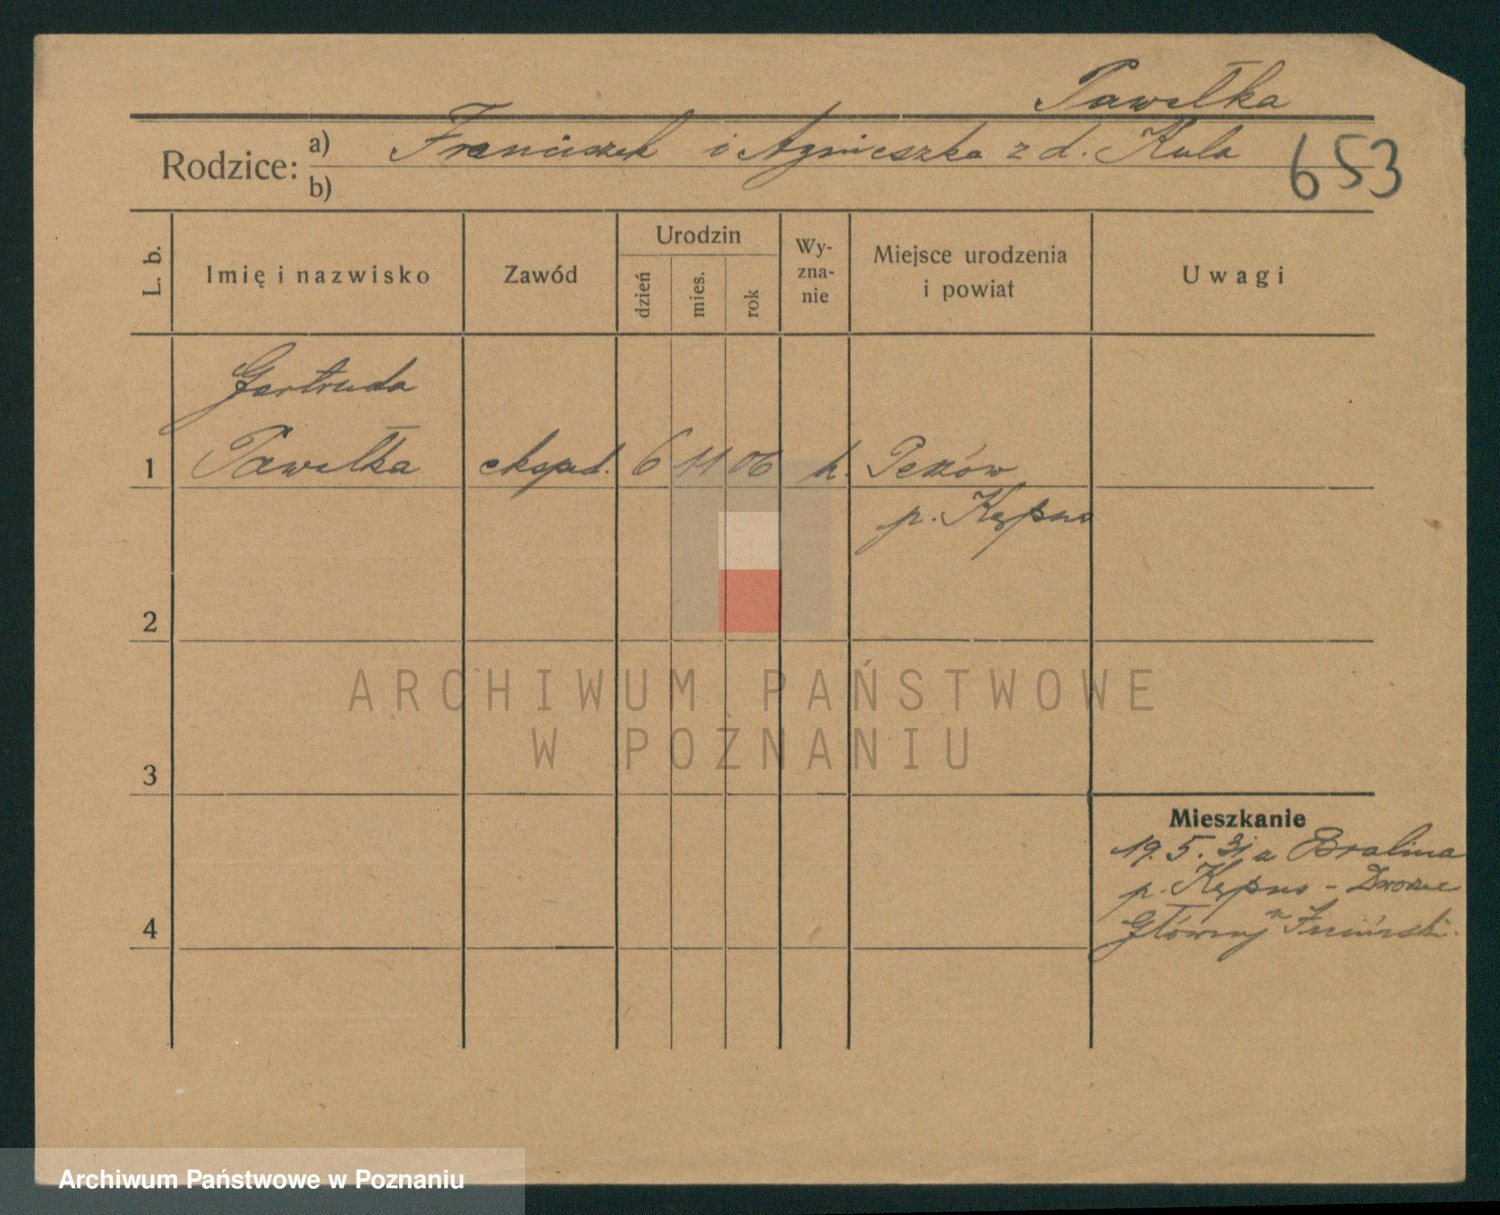 Pawełka
Rodzice: a) Franciszek i Agnieszka z d. Kula
653
b)
L. b. Imię i nazwisko Zawód Urodzin dzień mies. rok Wy-zna-nie Miejsce urodzenia i powiat Uwagi
Gertruda
1 Pawełka eksped. 6 11 06 k.
p. Kępno
2
ARCHIWUM PAŃSTWOWE
W POZNANIU
3
Mieszkanie
19. 5. 31 z Bralina
p. Kępno - Dworzec
4 Główny
Archiwum Państwowe w Poznaniu